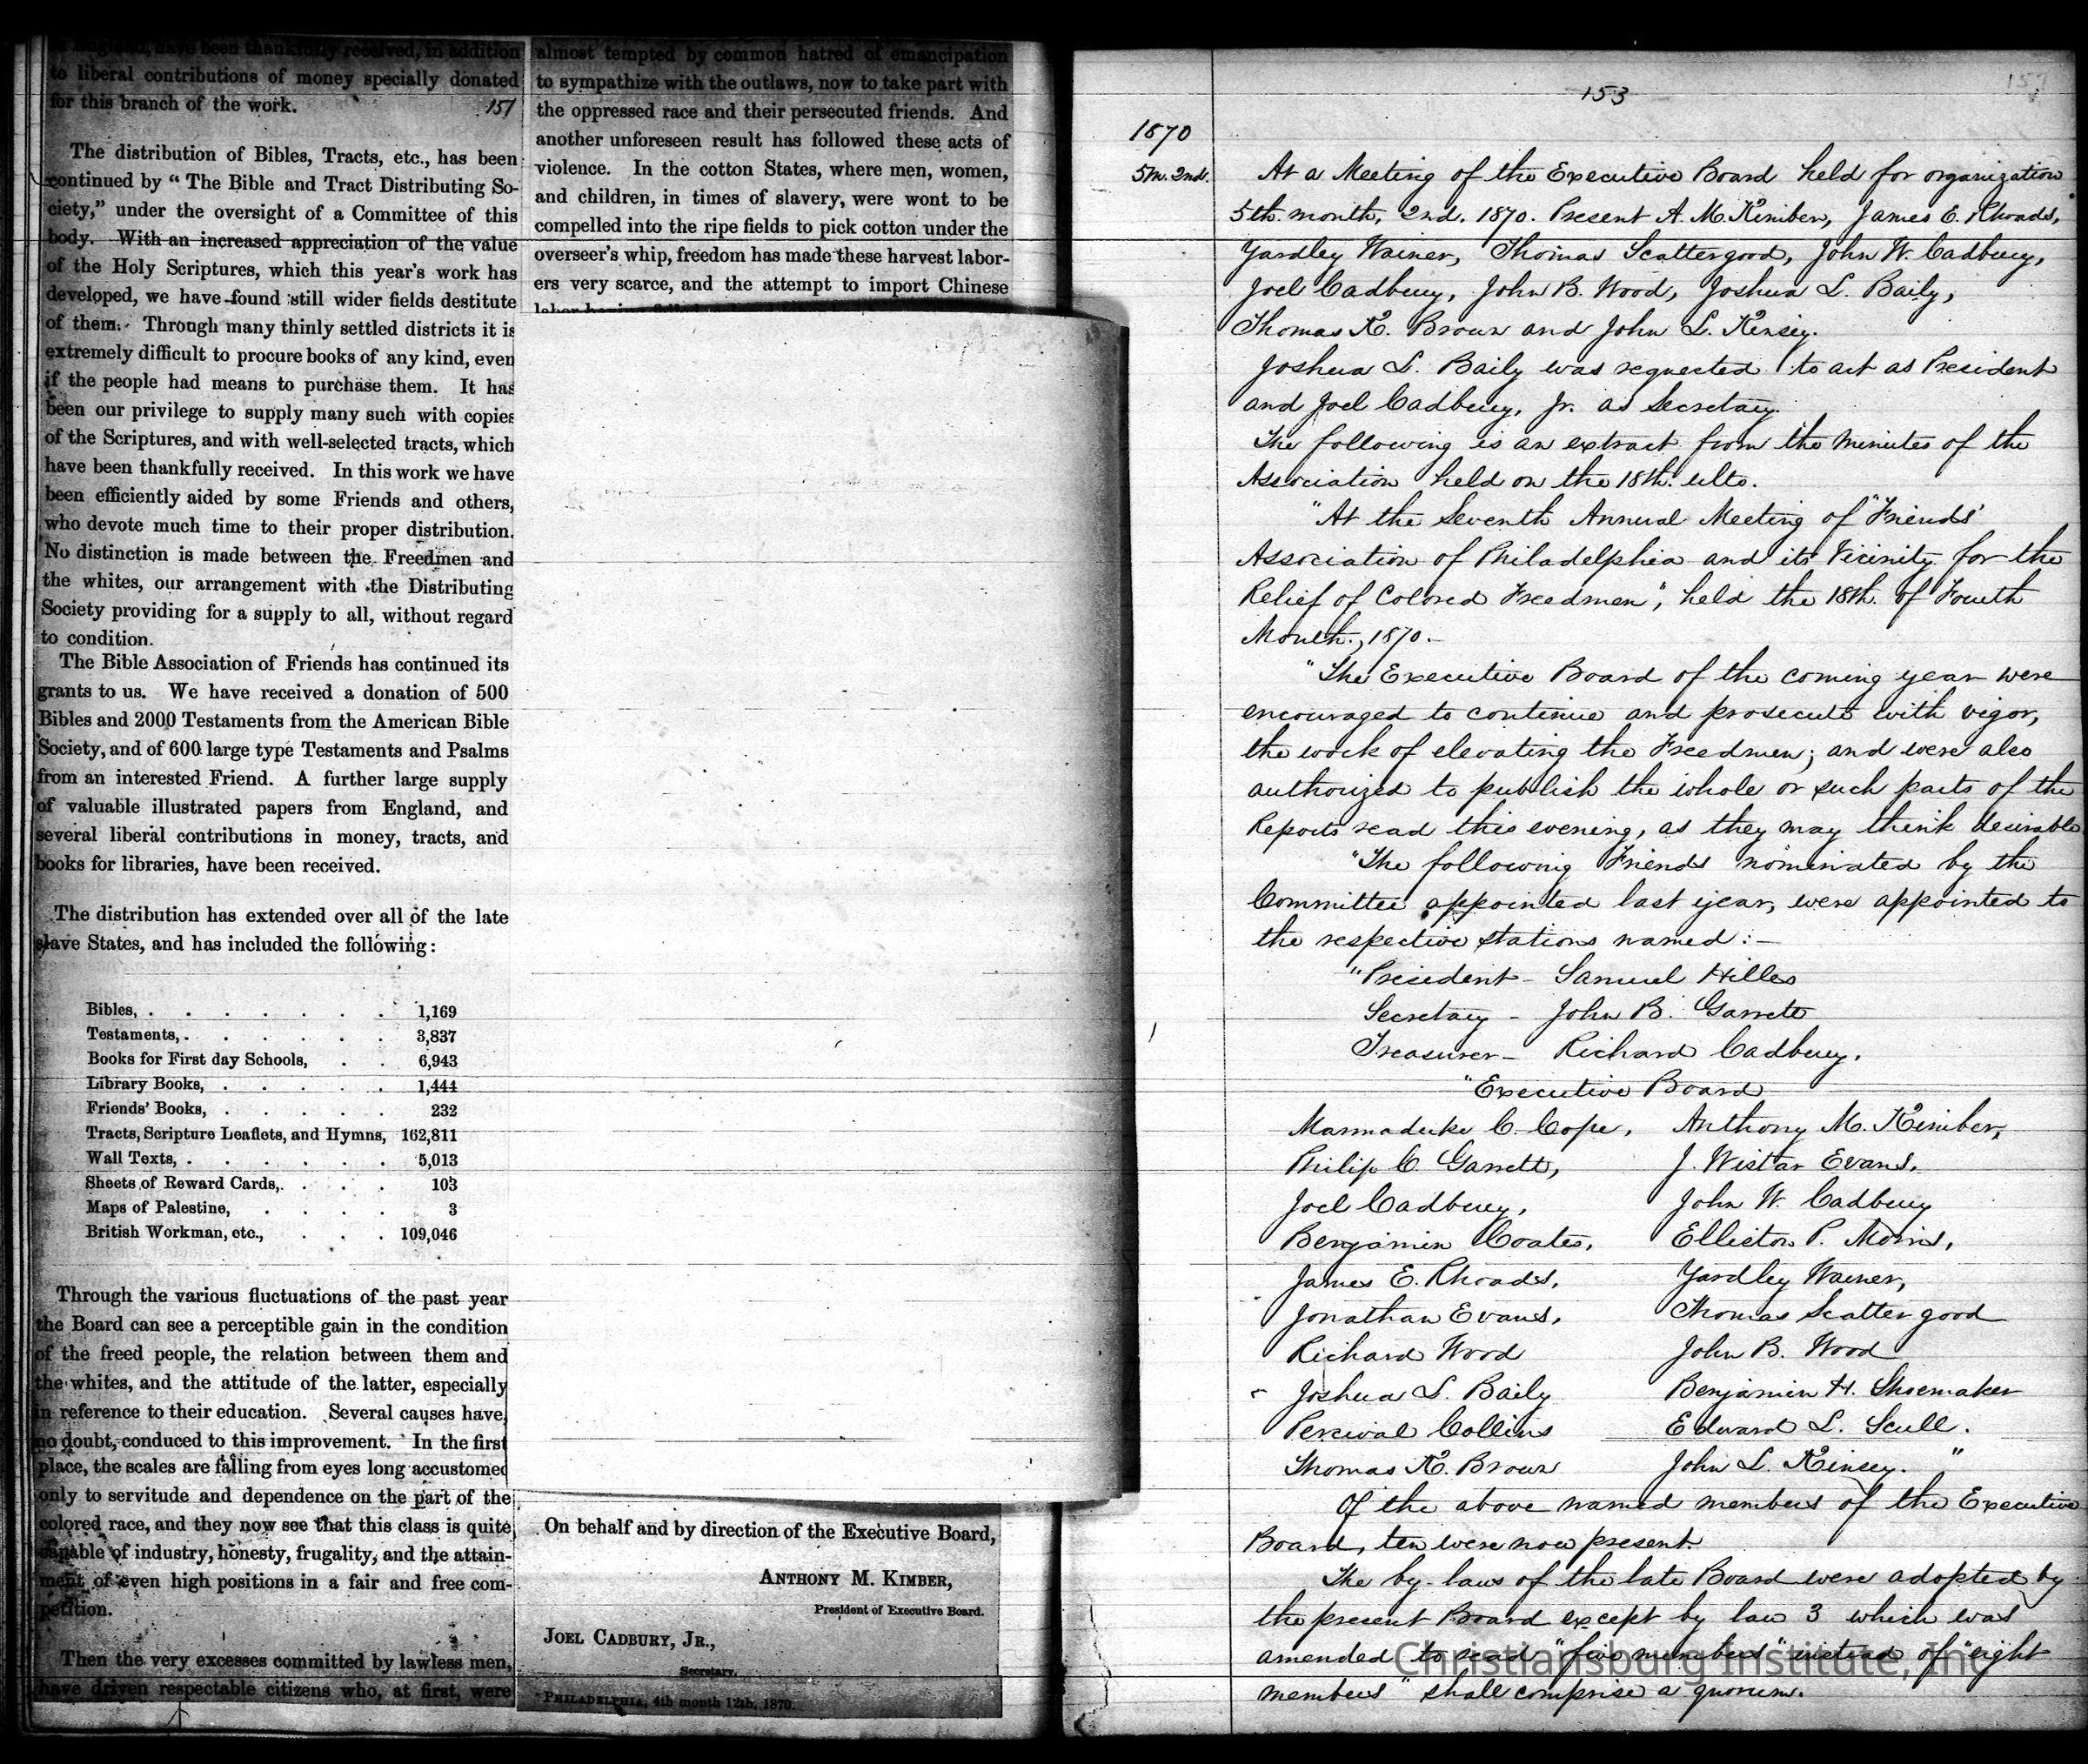 in England, have been thankfully received, in addition
to liberal contributions of money specially donated
for this branch of the work.
151
The distribution of Bibles, Tracts, etc., has been
continued by “ The Bible and Tract Distributing So-
ciety,” under the oversight of a Committee of this
body. With an increased appreciation of the value
of the Holy Scriptures, which this year's work has
developed, we have found still wider fields destitute
of them. Through many thinly settled districts it is
extremely difficult to procure books of any kind, even
if the people had means to purchase them. It has
been our privilege to supply many such with copies
of the Scriptures, and with well-selected tracts, which
have been thankfully received. In this work we have
been efficiently aided by some Friends and others,
who devote much time to their proper distribution.
No distinction is made between the Freedmen and
the whites, our arrangement with the Distributing
Society providing for a supply to all, without regard
to condition.
The Bible Association of Friends has continued its
grants to us. We have received a donation of 500
Bibles and 2000 Testaments from the American Bible
Society, and of 600 large type Testaments and Psalms
from an interested Friend. A further large supply
of valuable illustrated papers from England, and
several liberal contributions in money, tracts, and
books for libraries, have been received.
The distribution has extended over all of the late
slave States, and has included the following:
Bibles, . . . . . . . 1,169
Testaments, . . . . . . 3,837
Books for First day Schools, . . 6,943
Library Books, . . . . . 1,444
Friends' Books, . . . . . 232
Tracts, Scripture Leaflets, and Hymns, 162,811
Wall Texts, . . . . . . 5,013
Sheets of Reward Cards, . . . 103
Maps of Palestine, . . . . 3
British Workman, etc., . . . 109,046
Through the various fluctuations of the past year
the Board can see a perceptible gain in the condition
of the freed people, the relation between them and
the whites, and the attitude of the latter, especially
in reference to their education. Several causes have,
no doubt, conduced to this improvement. In the first
place, the scales are falling from eyes long accustomed
only to servitude and dependence on the part of the
colored race, and they now see that this class is quite
capable of industry, honesty, frugality, and the attain-
ment of even high positions in a fair and free com-
petition.
Then the very excesses committed by lawless men,
have driven respectable citizens who, at first, were
almost tempted by common hatred of emancipation
to sympathize with the outlaws, now to take part with
the oppressed race and their persecuted friends. And
another unforeseen result has followed these acts of
violence. In the cotton States, where men, women,
and children, in times of slavery, were wont to be
compelled into the ripe fields to pick cotton under the
overseer's whip, freedom has made these harvest labor-
ers very scarce, and the attempt to import Chinese
On behalf and by direction of the Executive Board,
ANTHONY M. KIMBER,
President of Executive Board.
JOEL CADBURY, JR.,
Secretary.
PHILADELPHIA, 4th month 12th, 1870.
153
1870
5m. 2nd. At a Meeting of the Executive Board held for organization
5th. month, 2nd. 1870. Present A. M. Kimber, James E. Rhoads,
Yardley Warner, Thomas Scattergood, John W. Cadbury,
Joel Cadbury, John B. Wood, Joshua L. Baily,
Thomas K. Brown and John L. Kinsey.
Joshua L. Baily was requested to act as President
and Joel Cadbury, Jr. as Secretary.
The following is an extract from the minutes of the
Association held on the 18th. ulto.
"At the Seventh Annual Meeting of "Friends'
Association of Philadelphia and its Vicinity for the
Relief of Colored Freedmen", held the 18th. of Fourth
Month, 1870.-
"The Executive Board of the coming year were
encouraged to continue and prosecute with vigor,
the work of elevating the Freedmen; and were also
authorized to publish the whole or such parts of the
Reports read this evening, as they may think desirable.
"The following Friends nominated by the
Committee appointed last year, were appointed to
the respective stations named:-
"President - Samuel Hilles
Secretary - John B. Garrett
Treasurer - Richard Cadbury.
"Executive Board
Marmaduke C. Cope, Anthony M. Kimber,
Philip C. Garrett, J. Wistar Evans,
Joel Cadbury, John W. Cadbury
Benjamin Coates, Elliston P. Morris,
James E. Rhoads, Yardley Warner,
Jonathan Evans, Thomas Scattergood
Richard Wood John B. Wood
Joshua L. Baily Benjamin H. Shoemaker
Percival Collins Edward L. Scull.
Thomas K. Brown John L. Kinsey. "
Of the above named members of the Executive
Board, ten were now present.
The by-laws of the late Board were adopted by
the present Board except by law 3 which was
amended to read "five members" instead of "eight
members" shall comprise a quorum.
Christiansburg Institute, Inc.